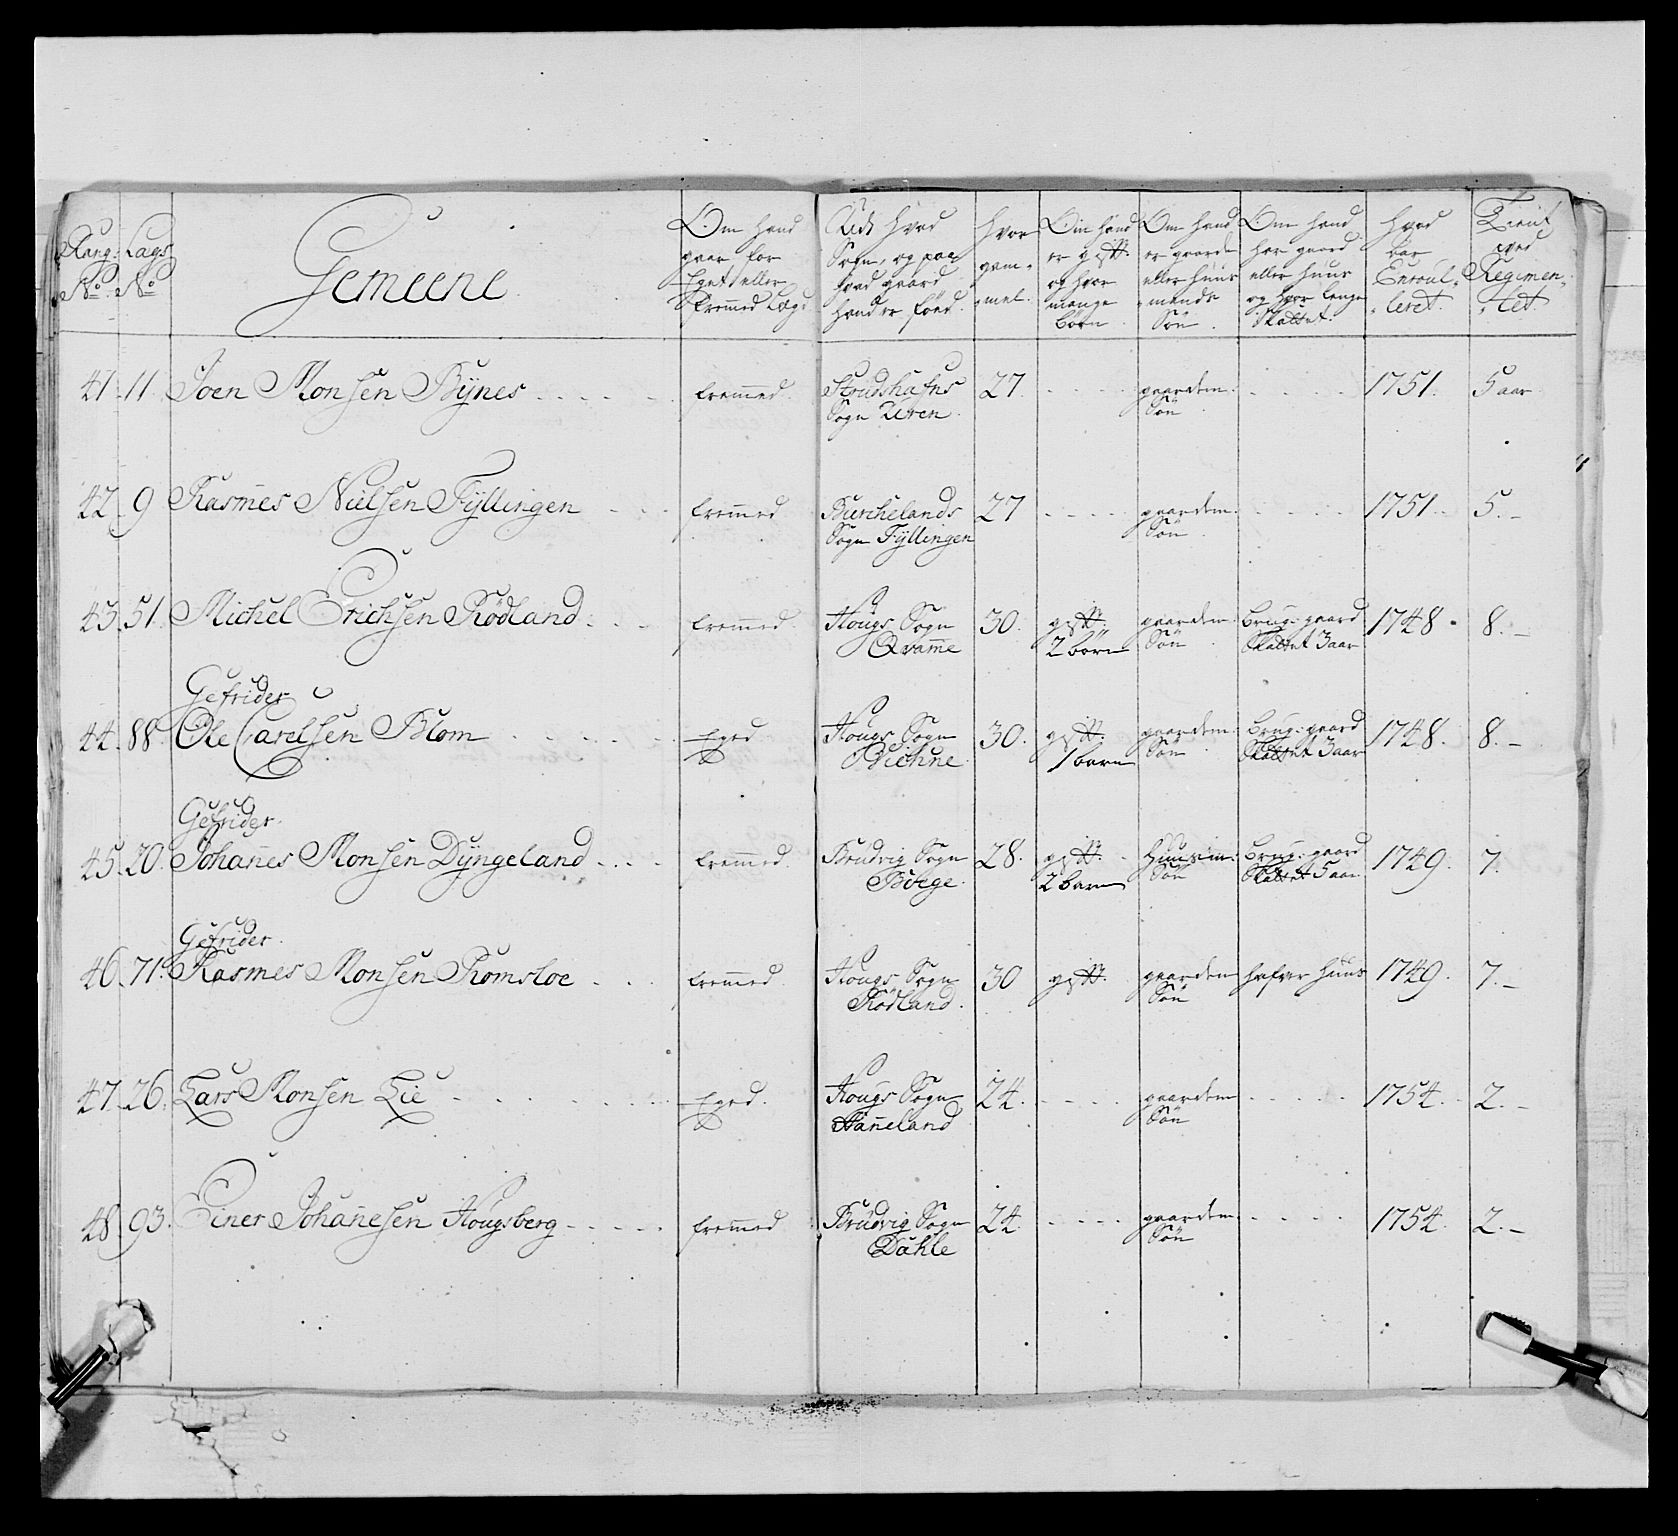 Rang No Lags No Gemeene Om hand gaar for Eget eller Fremmed Lægd Udi hvad Sogn, og paa hvad gaard hand er föed. Hvor gam- mel. Om hand er gift og hvor mange börn Om hand er gaards eller huus- mands Sön. Om hand har gaard eller huus og hvor lenge Skattet. Hvad aar Enroul- leret. Tient ved Regimen- tet.
41. 11. Joen Monsen Bÿnes fremmed Strudshafns Sogn Uren 27. gaardem: Sön 1751. 5 aar
42. 9 Rasmes Nielsen Fÿllingen fremmed Burchelands Sogn Fÿllingen 27 gaardem: Sön 1751 5.
43. 51. Michel Erichsen Rödland fremmed Hougs Sogn Qvam̄e 30. gift. 2 börn gaardem: Sön Brug: gaard Skattet 3 aar 1748. 8.
Gefrider
44. 88. Ole Carelsen Blom Eged Hougs Sogn Biehne 30. gift. 1 barn gaardem: Sön Brug: gaard Skattet 3 aar 1748. 8.
Gefrider.
45. 20. Johan̄es Monsen Dÿngeland fremmed Brudvig Sogn Börge. 28. gift. 2 barn Huusm: Sön Brug: gaard Skattet 5 aar 1749. 7.
Gefrider.
46. 71. Rasmes Monsen Romsloe fremmed Hougs Sogn Rödland. 30 gift. gaardem Sön hafver huus 1749. 7.
47. 26. Lars Monsen Lie Eged. Hougs Sogn Han̄eland 24. gaardem Sön 1754. 2.
48. 93. Einer Johan̄esen Hougsberg fremmed Brudvig Sogn Dahle 24. gaardem: Sön 1754. 2.